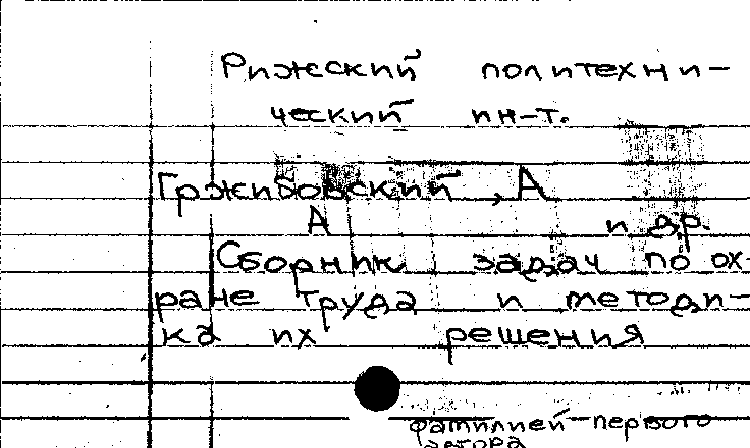 Рижский политехни-
ческий ин-т.
Гржибовский, А
А и др.
Сборник задач по ох-
ране труда и методи-
ка их решения
фамилией первого
автора